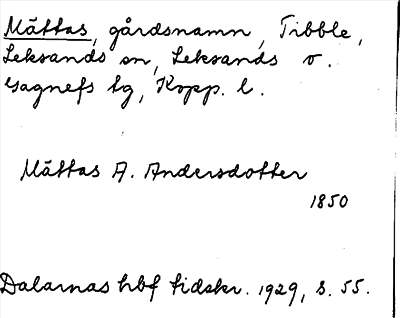 Mättas, gårdsnamn, Tibble,
Leksands sn, Leksands o.
Gagnefs tg, Kopp. l.
Mättas A. Andersdotter
1850
Dalarnas hbf tidskr. 1929, s. 55.